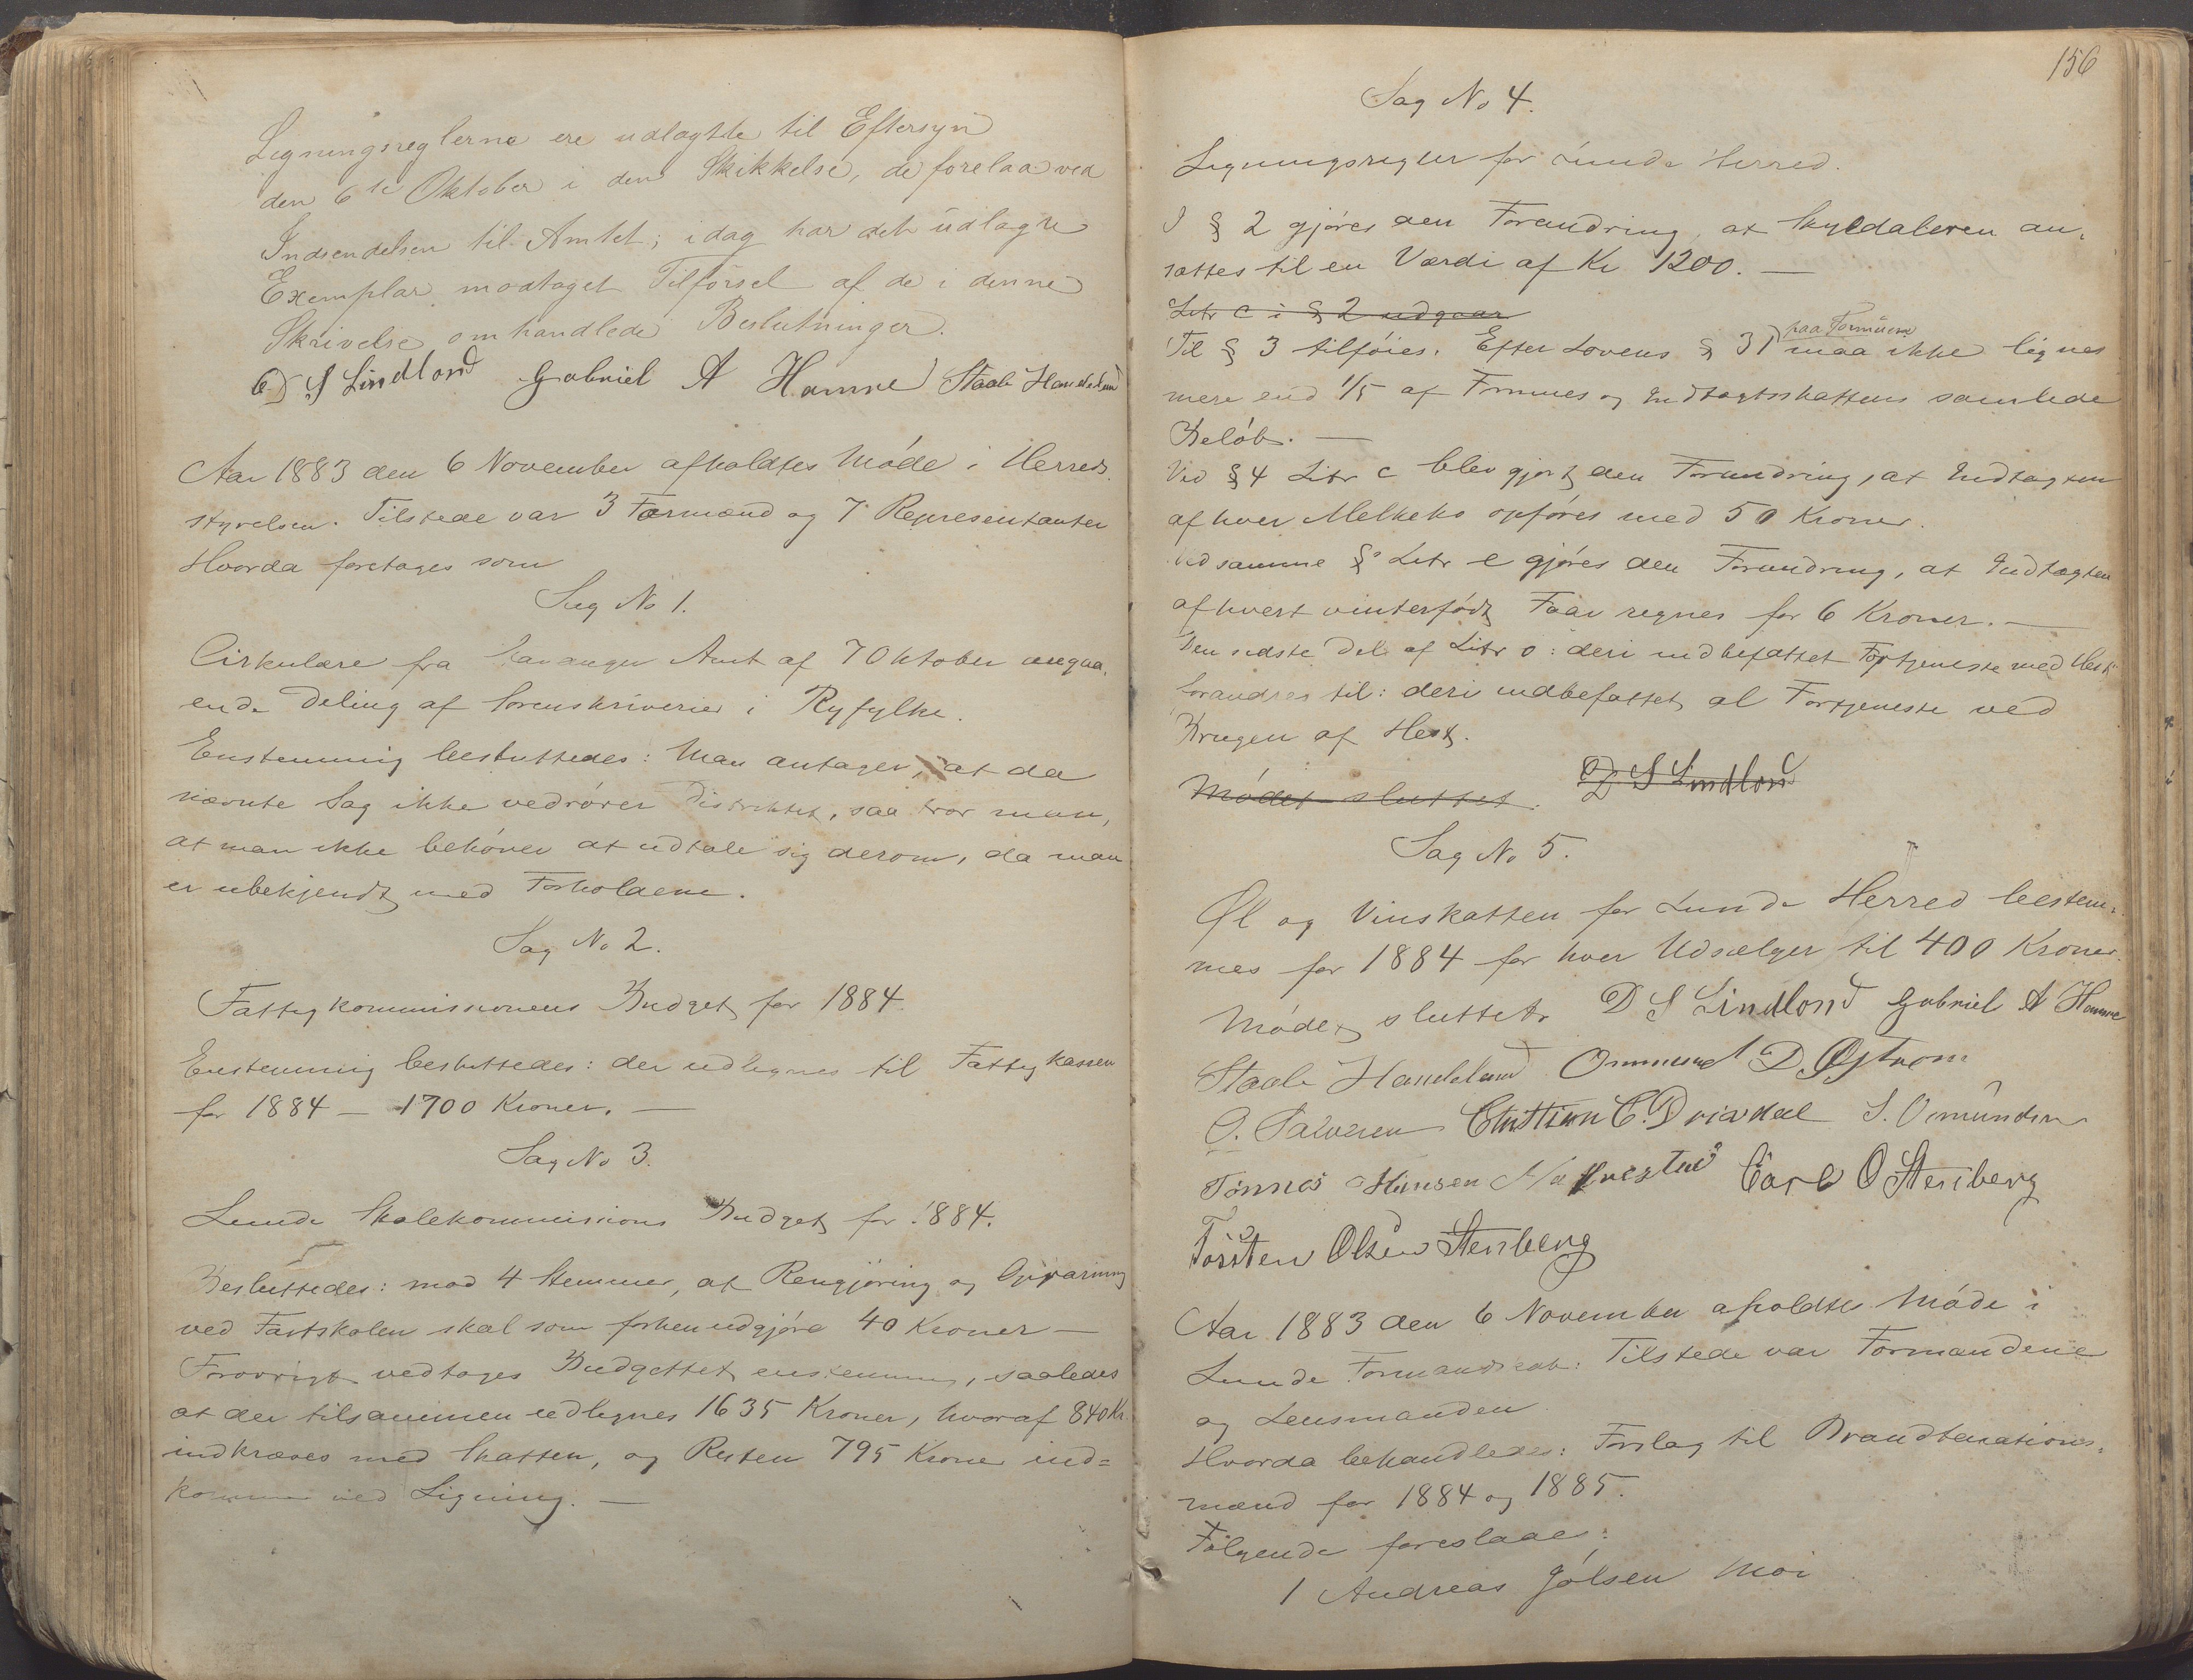 Ligningsreglerne ere udlagtte til Eftersyn
den 6te Oktober i den Skikkelse, de forelaa ved
Indsendelsen til Amtet; idag har det udlagte
Exemplar modtaget Tilførsel af de i denne
Skrivelse omhandlede Beslutninger.
D S Lindland Gabriel A Hamre Staale Handeland
Aar 1883 den 6 November afholdtes Møde i Herreds-
styrelsen. Tilstede var 3 Formænd og 7 Representanter
Hvorda foretages som
Sag No 1.
Cirkulære fra Stavanger Amt af 7 Oktober angaa-
ende Deling af Sorenskriverier i Ryfylke.
Enstemmig besluttedes: Man antager, at da
nævnte Sag ikke vedrører Distriktet, saa tror man,
at man ikke behøver at udtale sig derom, da man
er ubekjendt med Forholdene.
Sag No 2.
Fattigkommissionens Budget for 1884.
Enstemmig besluttedes: der udlignes til Fattigkassen
for 1884 – 1700 Kroner. —
Sag No 3.
Lunde Skolekommissions Budget for 1884.
Besluttedes: mod 4 Stemmer, at Rengjøring og Opvarming
ved Fastskolen skal som forhen udgjøre 40 Kroner —
Forøvrigt vedtages Budgettet enstemmig, saaledes
at der tilsammen udlignes 1635 Kroner, hvoraf 840 Kr.
indkræves med Skatten, og Resten 795 Kroner ind=
kommer ved Ligning. —
156
Sag No 4.
Ligningsregler for Lunde Herred.
I § 2 gjøres den Forandring, at Skyldaleren an-
sættes til en Værdi af Kr 1200. —
Litr c i § 2 udgaar
Til § 3 tilføies: Efter Lovens § 31 paa Formuen maa ikke lignes
mere end 1/5 af Formues og Indtægtsskattens samlede
Beløb. —
Ved § 4 Litr c blev gjort den Forandring, at Indtægten
af hver Melkeko opføres med 50 Kroner.
Ved samme § Litr e gjøres den Forandring, at Indtægten
af hvert vinterfødt Faar regnes for 6 Kroner. —
Den sidste Del af Litr o: deri indbefattet Fortjeneste med Hest
forandres til: deri indbefattet al Fortjeneste ved
Brugen af Hest.
Mødet sluttet. D S Lindland
Sag No 5.
Øl og Vinskatten for Lunde Herred bestem-
mes for 1884 for hver Udsælger til 400 Kroner.
Mødet sluttet. D S Lindland Gabriel A Hamre
Staale Handeland Ommund D. Øjtron
O. Salvesen Christian C. Drivdal S. Omundsen
Tønnes Hansen Carl O Stenberg
Torsten Olsen Stenberg
Aar 1883 den 6 November afholdtes Møde i
Lunde Formandskab: Tilstede var Formændene
og Lensmanden
Hvorda behandledes: Forslag til Brandtaxations-
mænd for 1884 og 1885.
Følgende foreslaaes:
1 Andreas Jólsen Moi